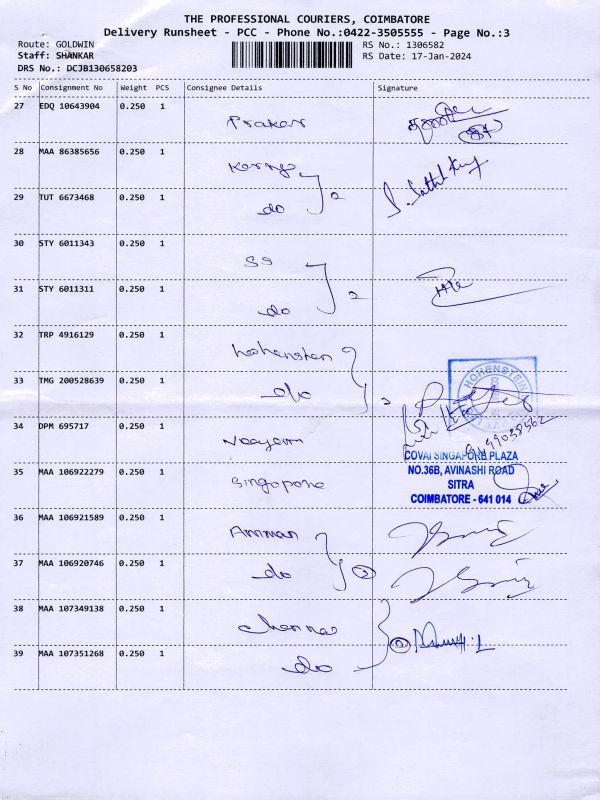 THE PROFESSIONAL COURIERS, COIMBATORE
Delivery Runsheet - PCC - Phone No.:0422-3505555 - Page No.:3
Route: GOLDWIN RS No.: 1306582
Staff: SHANKAR RS Date: 17-Jan-2024
DRS No.: DCJB130658203
S No Consignment No Weight PCS Consignee Details Signature
27 EDQ 10643904 0.250 1
28 MAA 86385656 0.250 1
29 TUT 6673468 0.250 1 do 2
30 STY 6011343 0.250 1 SS
31 STY 6011311 0.250 1 do 2
32 TRP 4916129 0.250 1 hohenstein
33 TMG 200528639 0.250 1 do 2
HOHENSTEIN
34 DPM 695717 0.250 1
COVAI SINGAPORE PLAZA
35 MAA 106922279 0.250 1 Singapore
NO.36B, AVINASHI ROAD
SITRA
COIMBATORE - 641 014
36 MAA 106921589 0.250 1 Amman
37 MAA 106920746 0.250 1 do 2
38 MAA 107349138 0.250 1 chennai
39 MAA 107351268 0.250 1 do 2